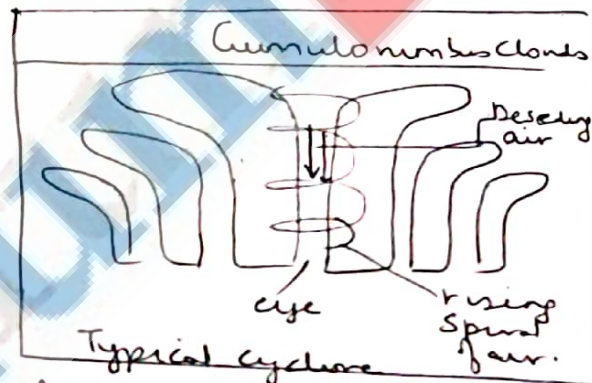 Cumulonimbus Clouds
Descending
air
eye
rising
Spiral
of air.
Typical cyclone
um